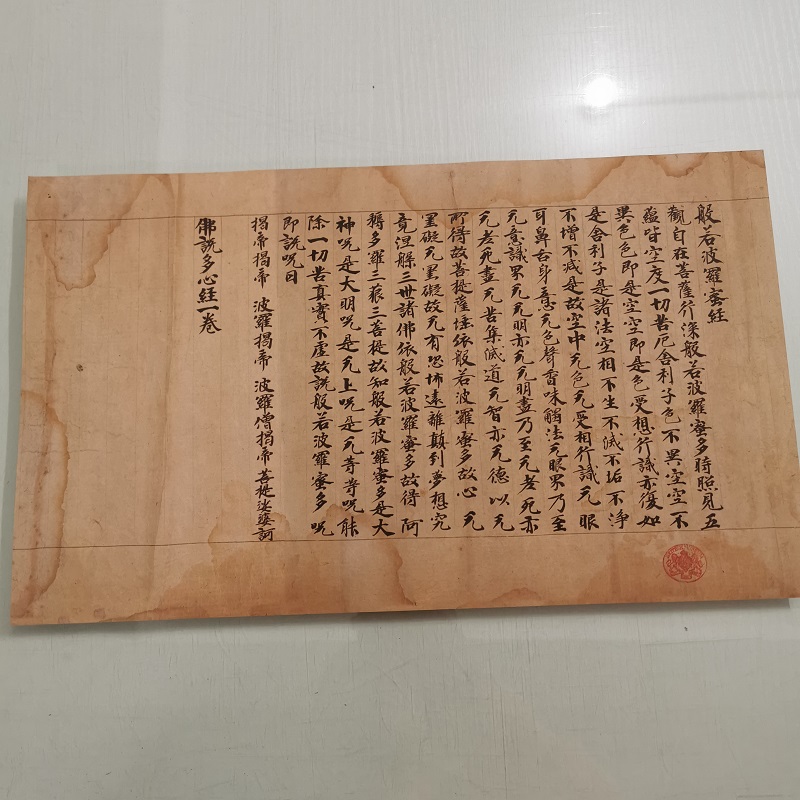 般若波羅蜜経
觀自在菩薩行深般若波羅蜜多時照見五
蘊皆空度一切苦厄舍利子色不異空空不
異色色即是空空即是色受想行識亦復如
是舍利子是諸法空相不生不滅不垢不淨
不增不减是故空中无色无受相行識无眼
耳鼻舌身意无色聲香味觸法无眼界乃至
无意識界无无明亦无无明盡乃至无老死亦
无老死盡无苦集滅道无智亦无德以无
所得故菩提薩埵依般若波羅蜜多故心无
罣礙无罣礙故无有恐怖遠離顛到夢想究
竟涅槃三世諸佛依般若波羅蜜多故得阿
耨多羅三藐三菩提故知般若波羅蜜多是大
神呪是大明呪是无上呪是无等等呪能
除一切苦真實不虛故説般若波羅蜜多呪
即説呪曰
揭帝揭帝 波羅揭帝 波羅僧揭帝 菩提娑婆訶
佛説多心経一卷